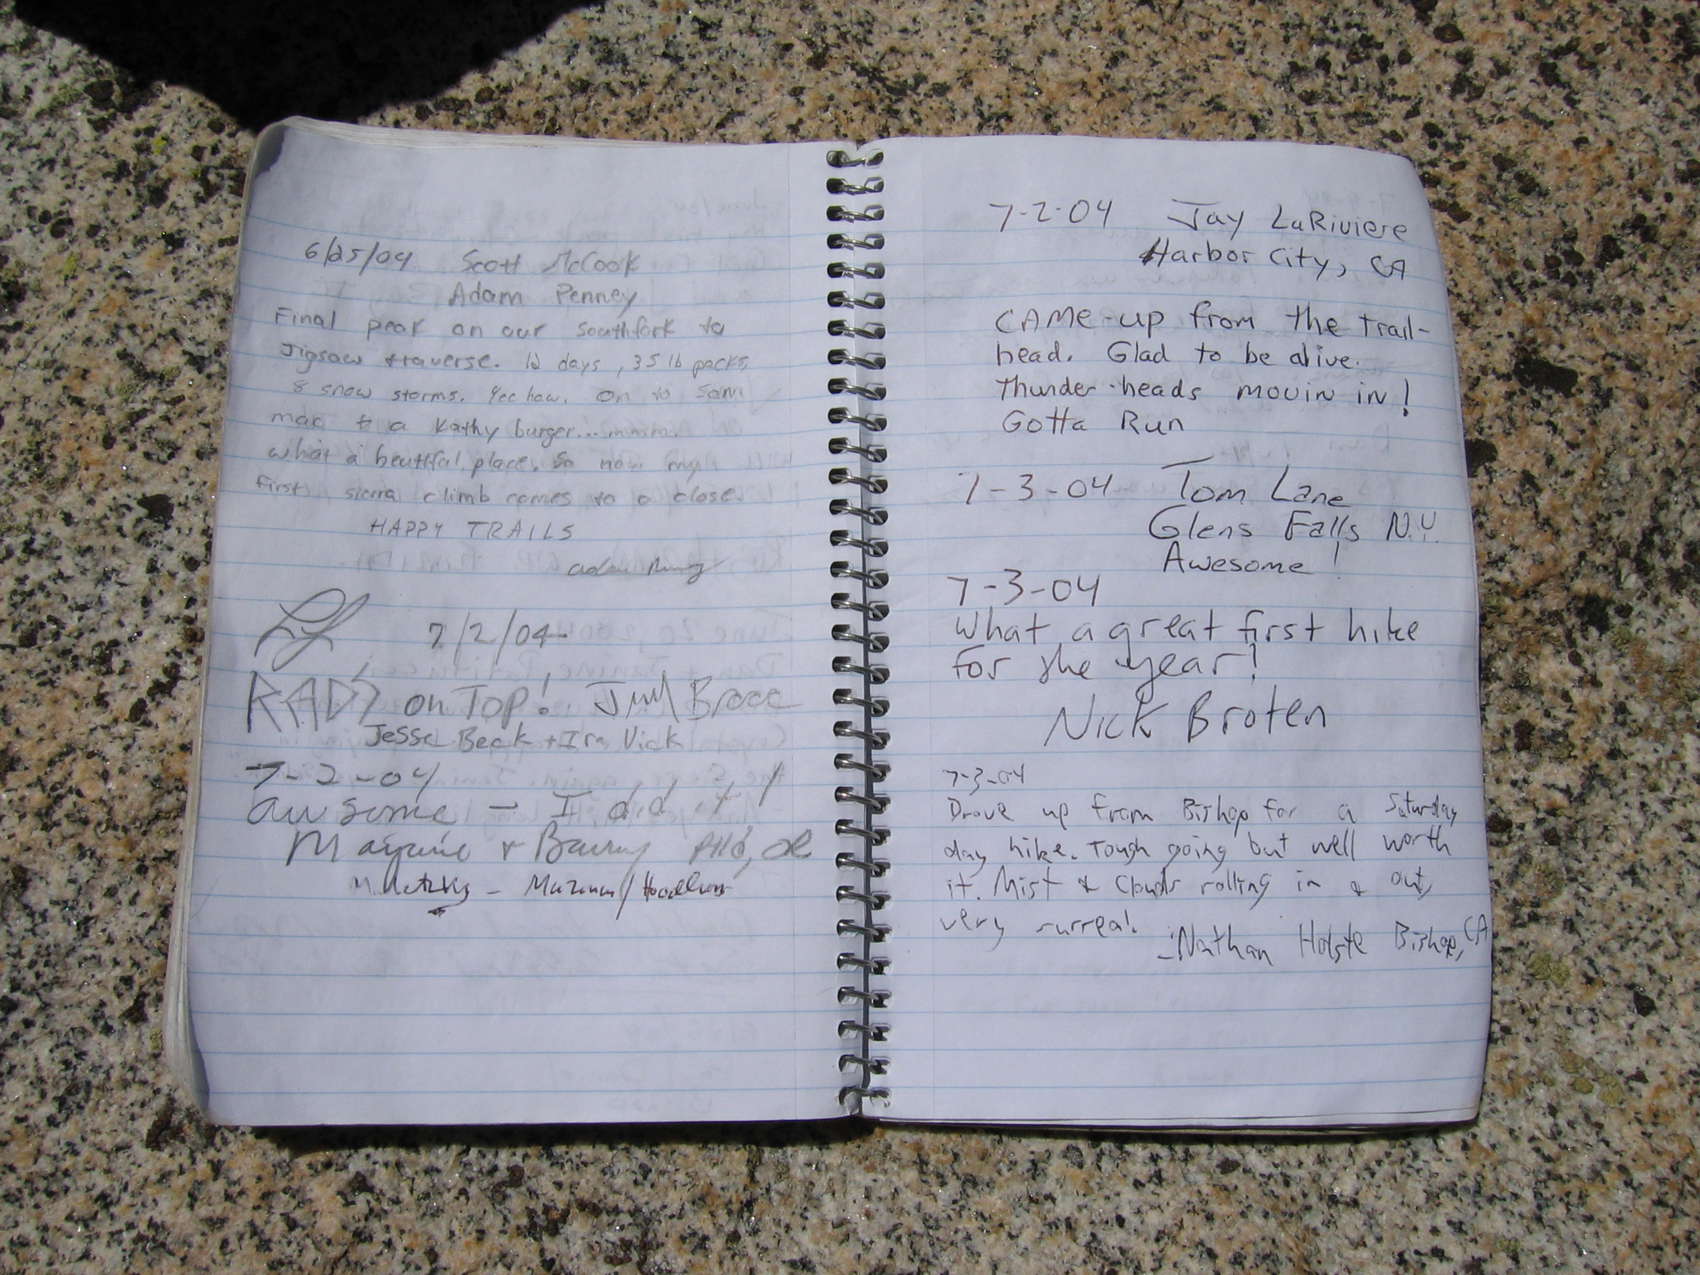 6/25/04 Scott McCook
Adam Penney
Final peak on our Southfork to
Jigsaw traverse. 12 days, 35 lb packs,
8 snow storms. Yee haw. On to Sam
mac & a Kathy burger... mmm.
what a beutiful place. So now my
first sierra climb comes to a close.
HAPPY TRAILS
7/2/04
RADS on Top!
Jesse Beck + Ira Vick
7-2-04
awsome - I did it!
Marjorie & Barry
7-2-04 Jay LaRiviere
Harbor City, CA
CAME up from the trail-
head. Glad to be alive.
Thunder-heads movin in!
Gotta Run
7-3-04 Tom Lane
Glens Falls N.Y.
Awesome!
7-3-04
What a great first hike
for the year!
Nick Broten
7-3-04
Drove up from Bishop for a Saturday
day hike. Tough going but well worth
it. Mist & Clouds rolling in & out,
very surreal.
-Nathan Holste Bishop, CA